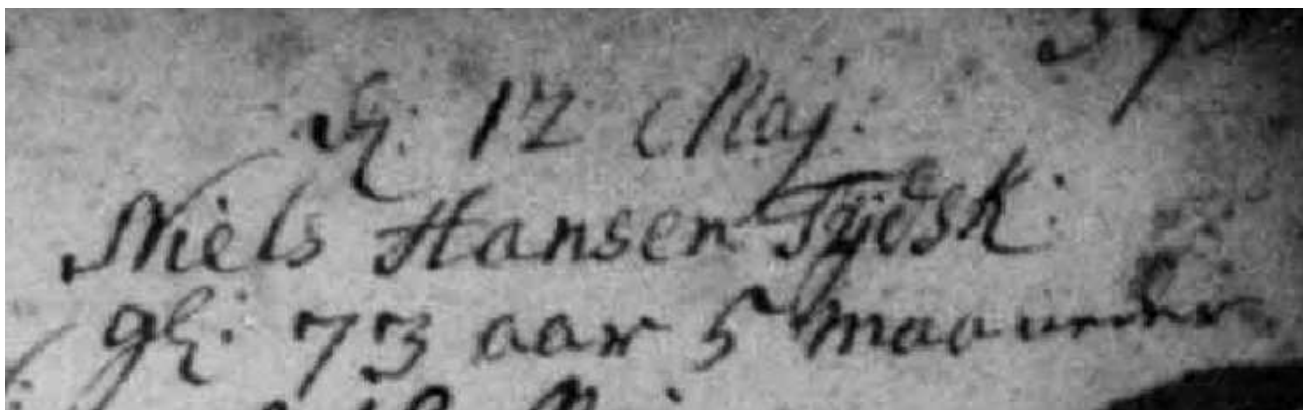 d. 12 Maj:
Niels Hansen Tydsk:
gl: 73 aar 5 maaneder